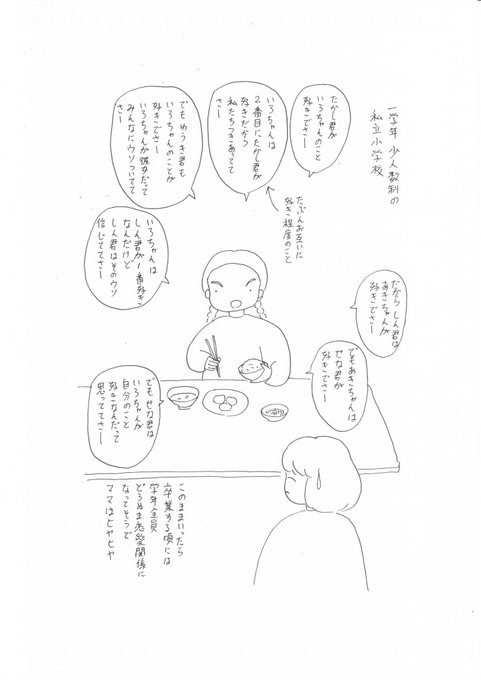 一学年 少人数制の
私立小学校
たかし君が
いろちゃんのこと
好きでさー
いろちゃんは
2番目にたかし君が
好きだから
私たちつきあってて
さー
たぶんお互いに
好き程度のこと
でもゆうき君も
いろちゃんのことが
好きでさー
いろちゃんが彼女だって
みんなにウソついてて
さー
いろちゃんは
しん君が1番好き
なんだけど
しん君はそのウソ
信じててさー
だからしん君は
あきちゃんが
好きでさー
でもあきちゃんは
せな君が
好きでさー
でもせな君は
いろちゃんが
自分のこと
好きなんだって
思っててさー
このままいったら
卒業する頃には
学年全員
どろぬま恋愛関係に
なってそうで
ママはヒヤヒヤ